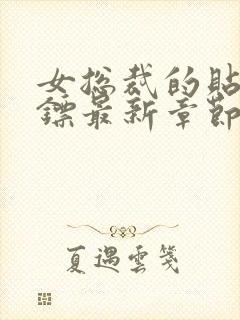 女总裁的贴
镖最新章节
夏遇雲箋